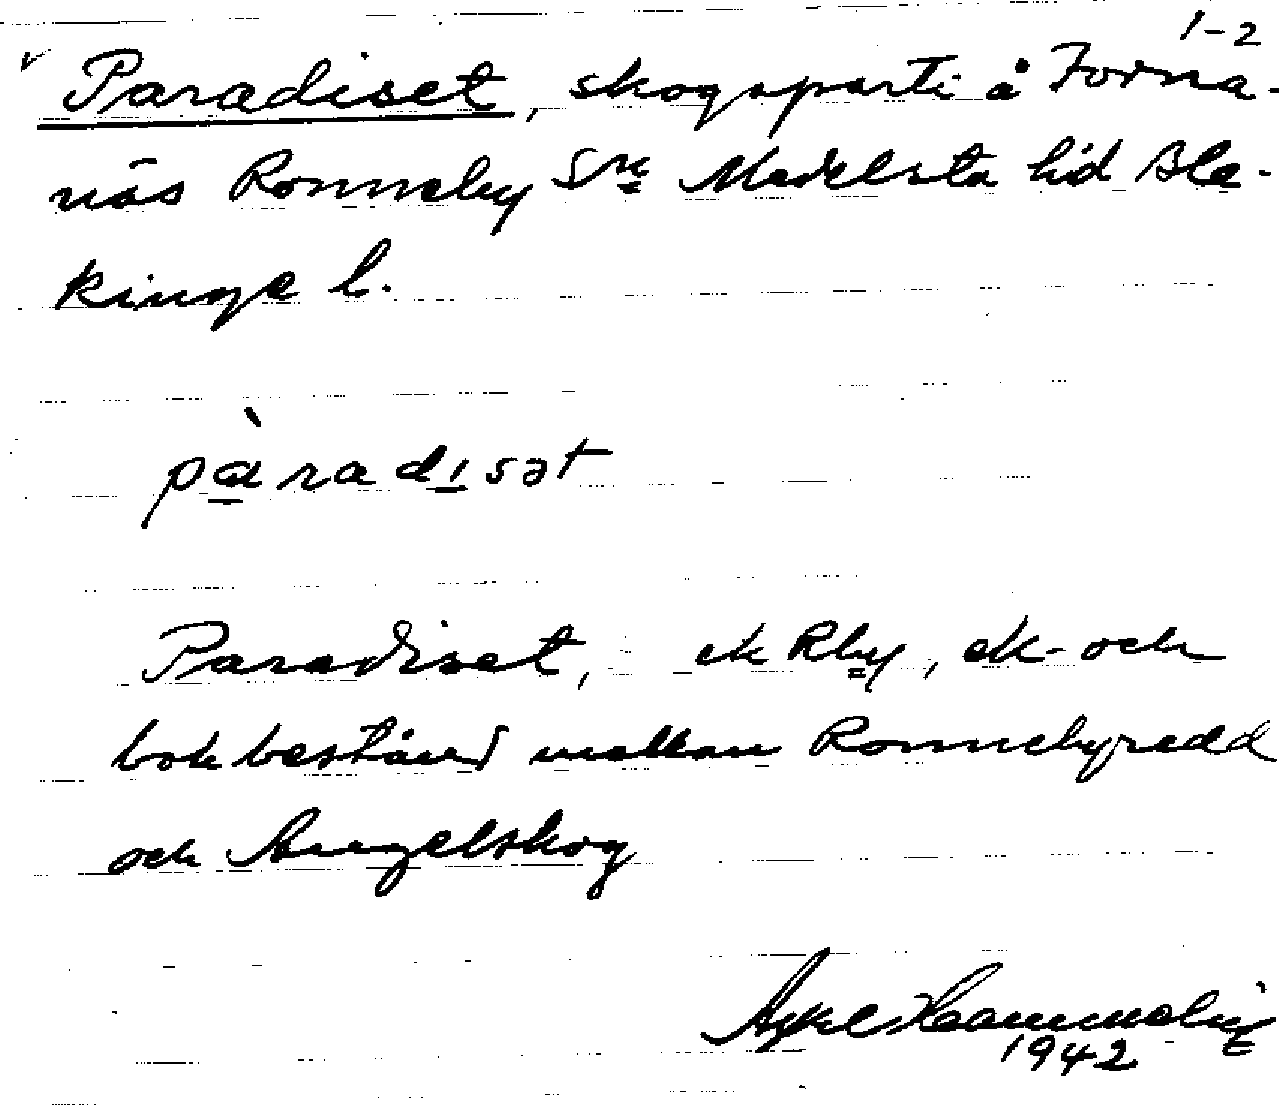 1-2
Paradiset, skogsparti å Torna-
näs Ronneby Sn Medelsta hd Ble-
kinge l.
pàradisət
Paradiset, ek Rby, ek- och
bokbestånd mellan Ronnebyredd
och Angelskog
Axel
1942